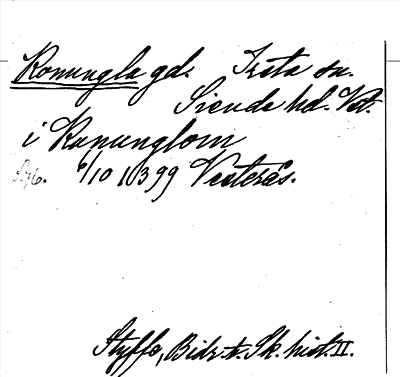 Konungla gd. Irsta sn.
Siende hd. Vst.
i Kunungløm
S. 76. 6/10 1399 Vesterås.
Styffe, Bidr. t. Sk. hist. II.